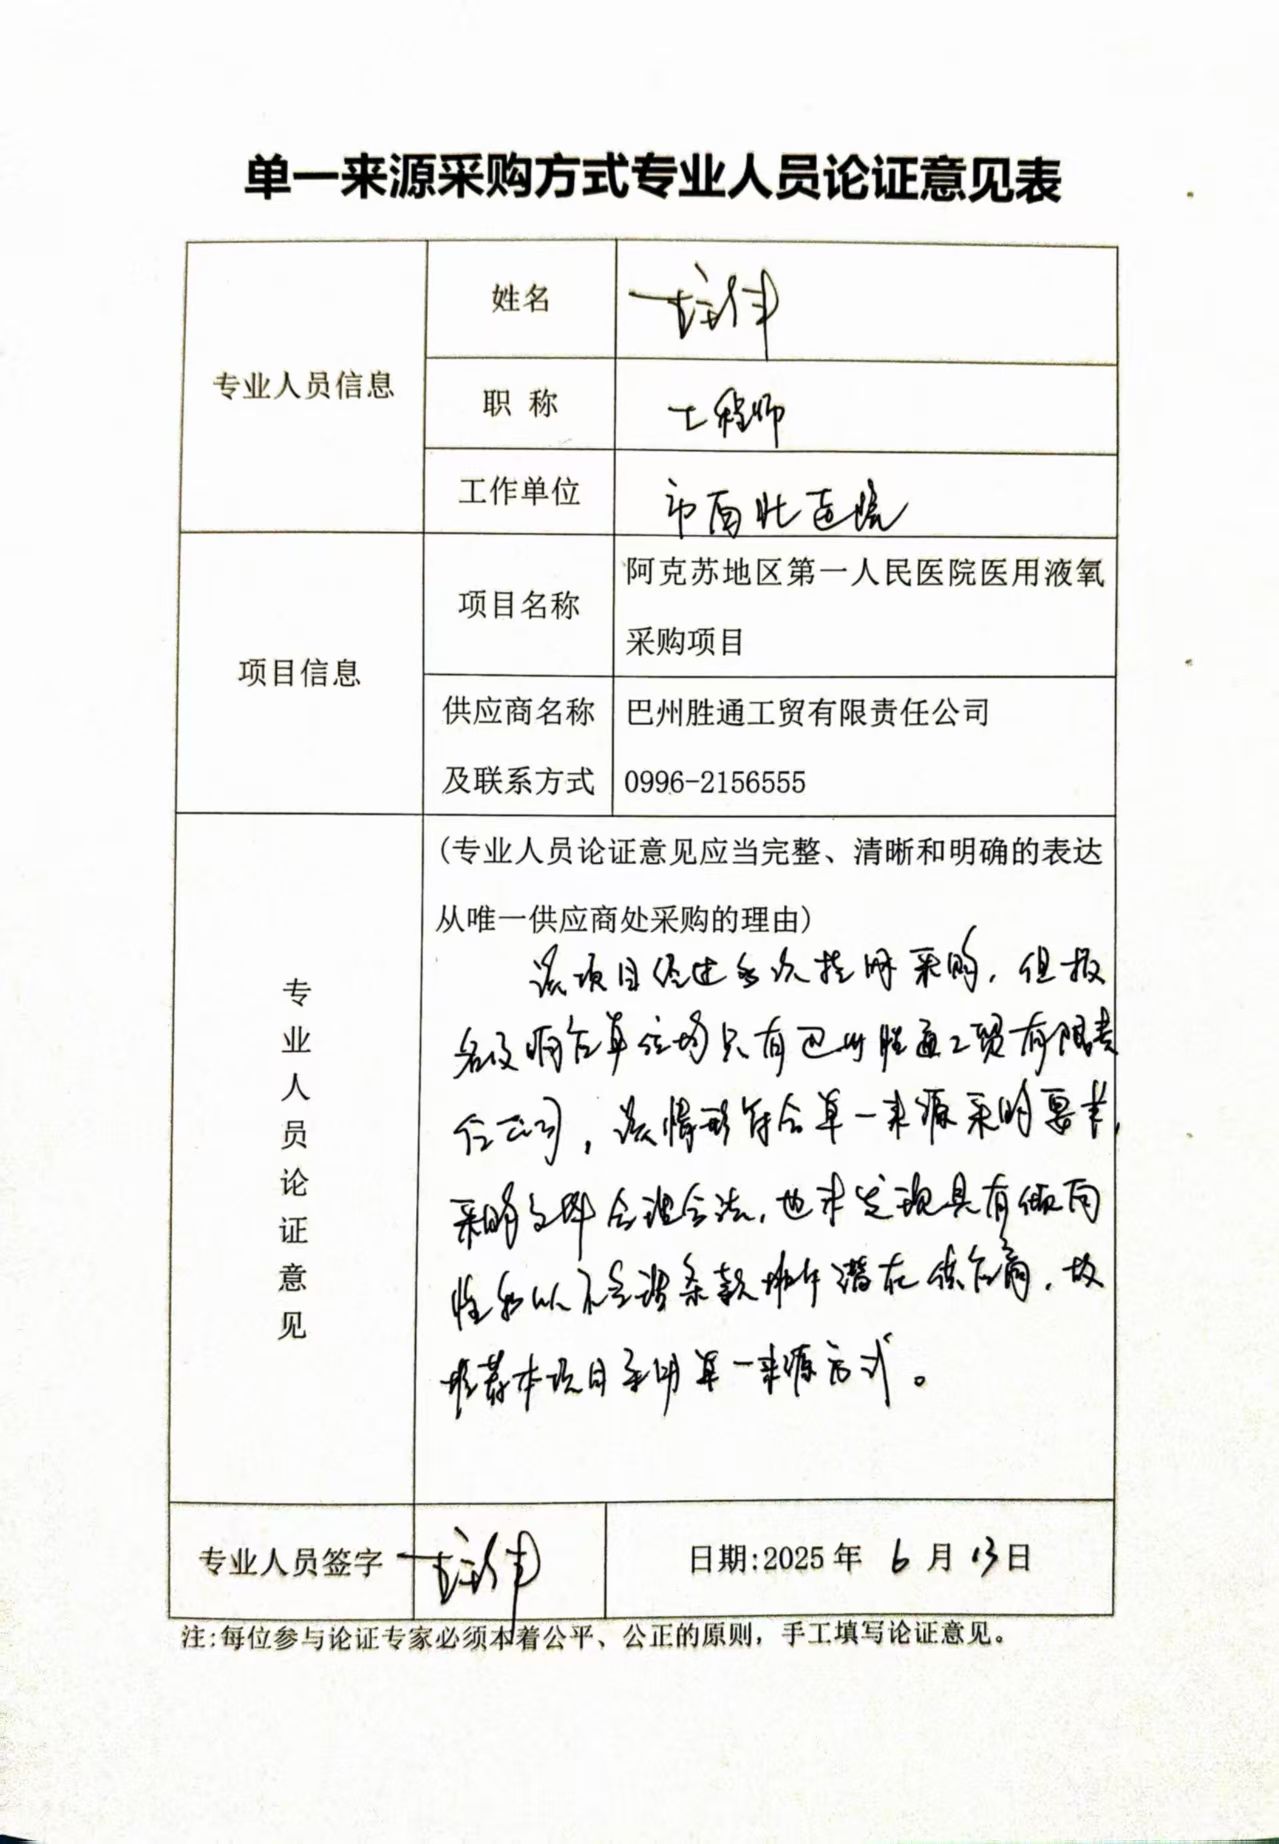 单一来源采购方式专业人员论证意见表
专业人员信息
姓名
职 称
工程师
工作单位
项目信息
项目名称
阿克苏地区第一人民医院医用液氧
采购项目
供应商名称
及联系方式
巴州胜通工贸有限责任公司
0996-2156555
专业人员论证意见
(专业人员论证意见应当完整、清晰和明确的表达
从唯一供应商处采购的理由)
该项目经过多次挂网采购，但报
名及响应单位均只有巴州胜通工贸有限责
任公司，该情形符合单一来源采购要求，
采购文件合理合法，也未发现具有倾向
性和以不合理条款排斥潜在供应商，故
推荐本项目采用单一来源方式。
专业人员签字
日期:2025年 6 月 13日
注:每位参与论证专家必须本着公平、公正的原则，手工填写论证意见。